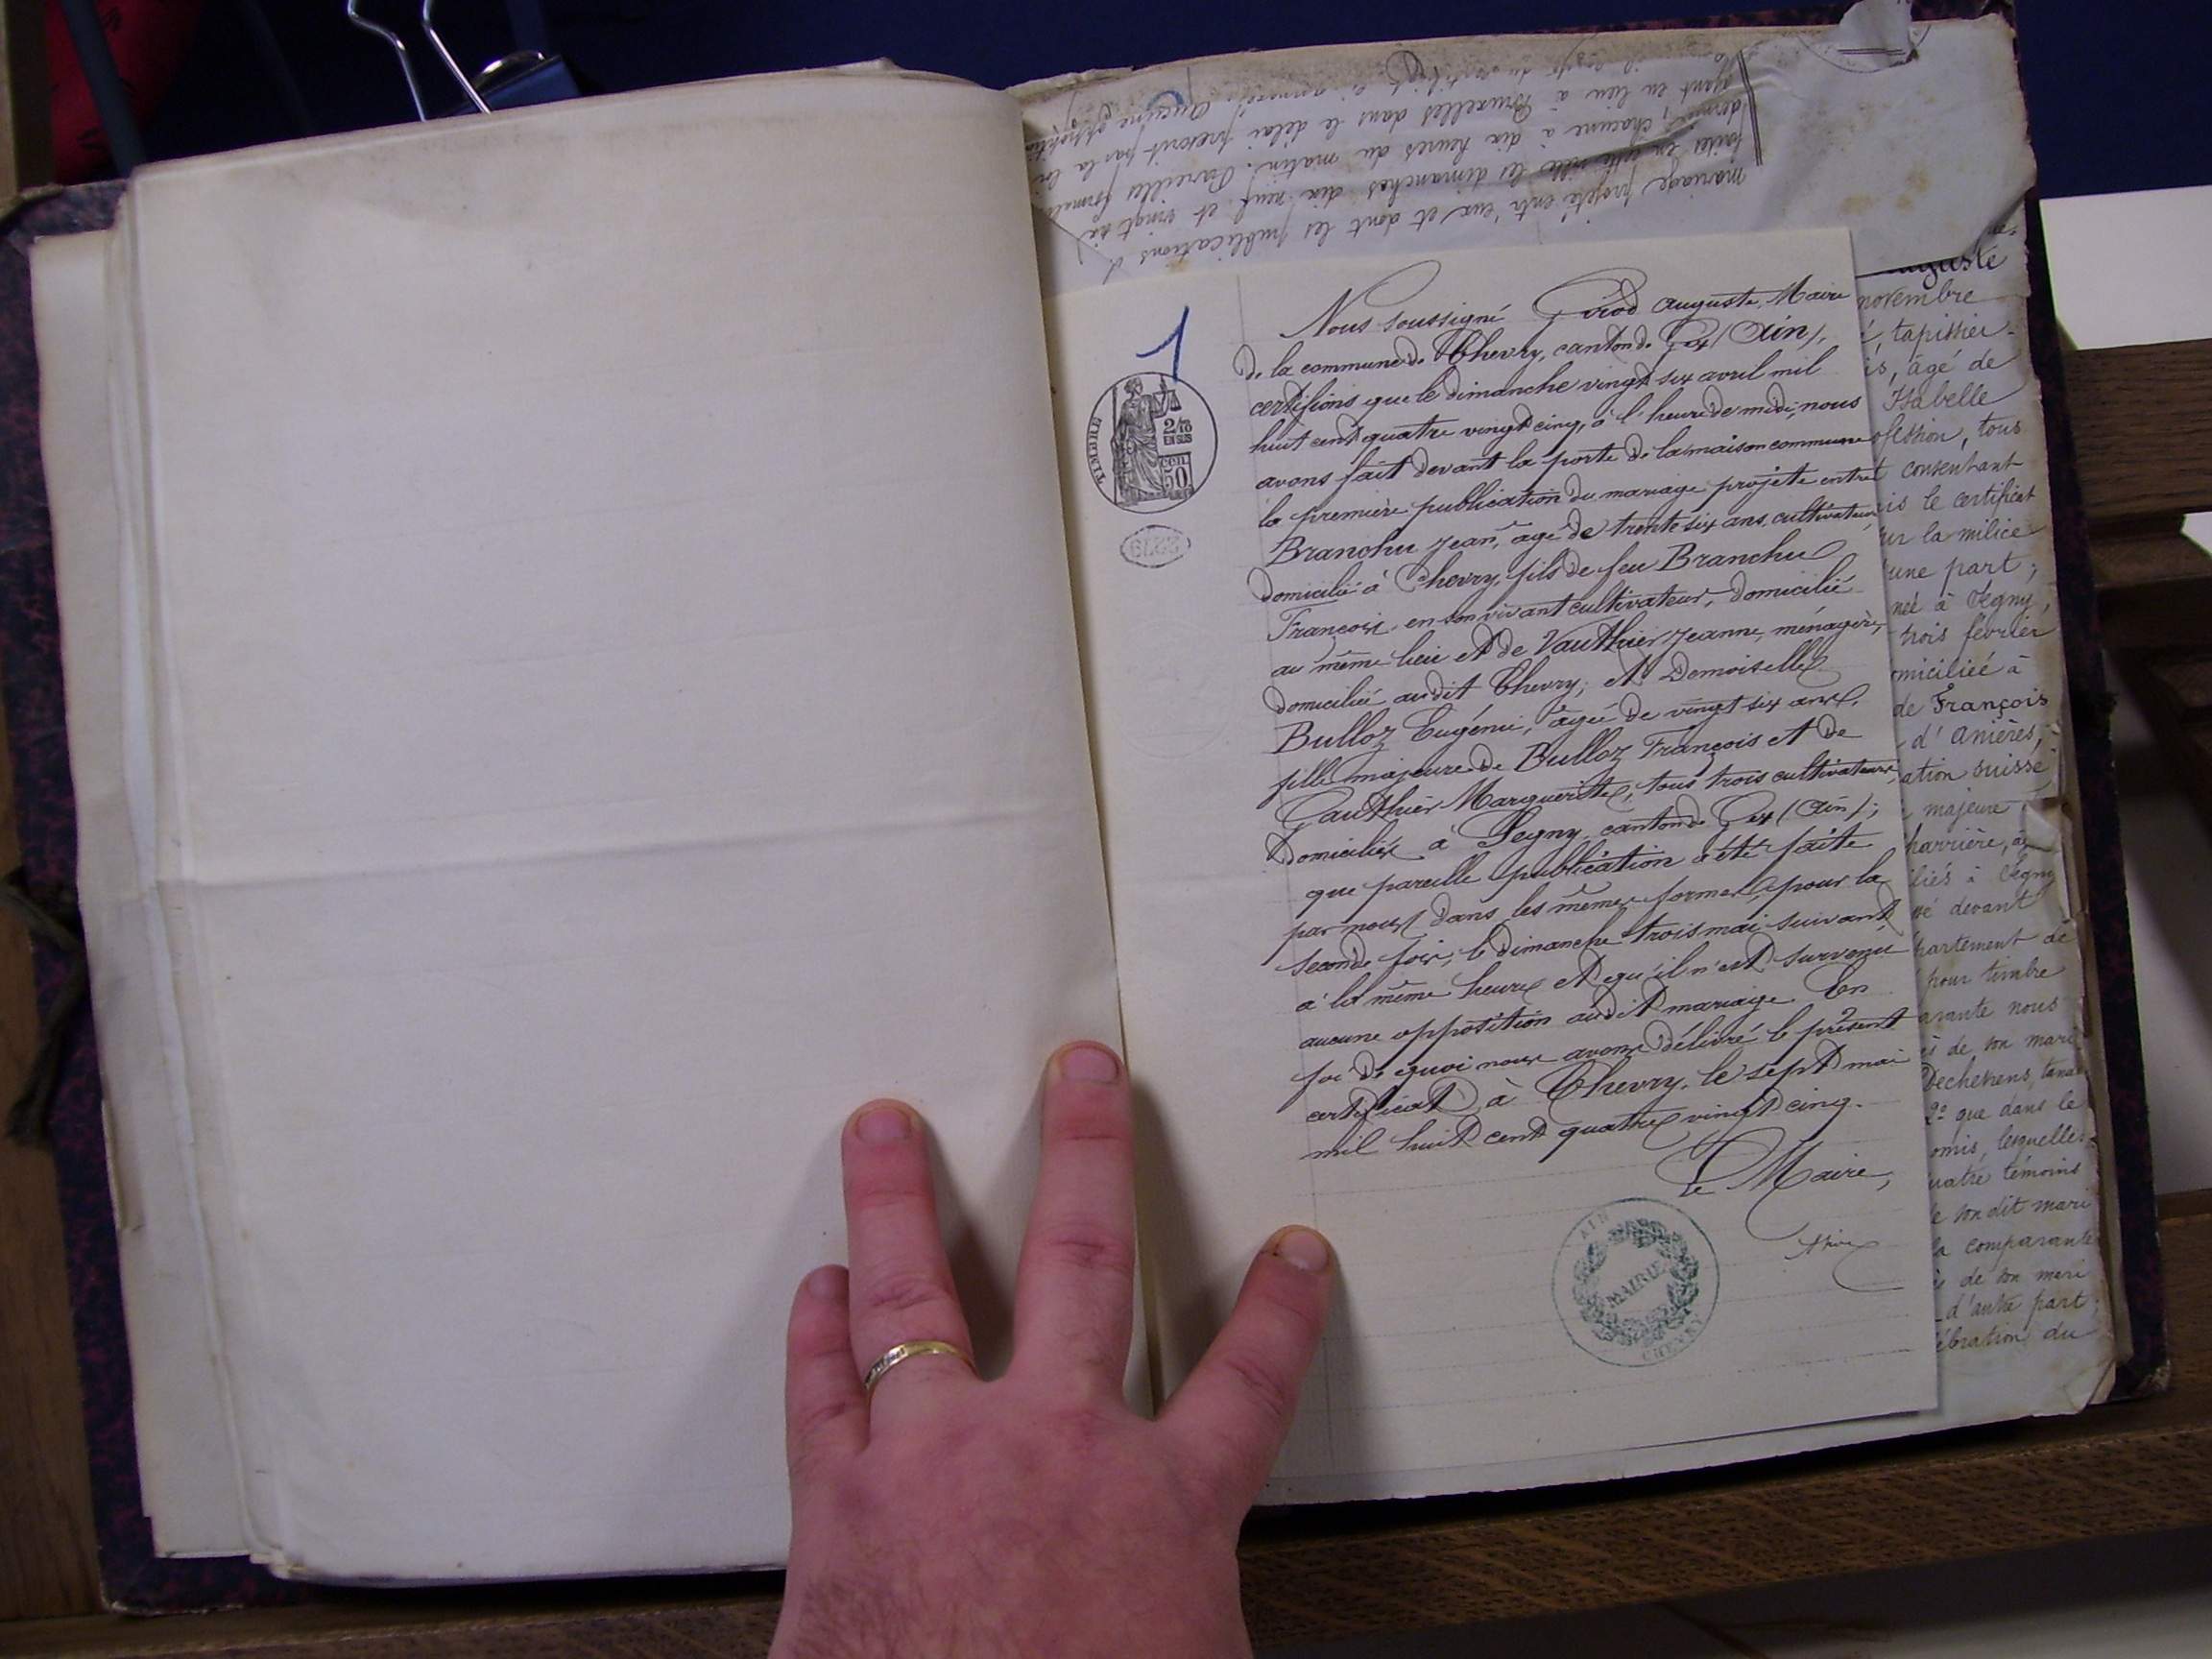 mariage projeté entr'eux et dont les publications
faites en cette ville les dimanches dix neuf et vingt six
dernier, chacune à dix heures du matin. Pareilles formali
ayant eu lieu à Bruxelles dans le délai prescrit par la loi
aucune opposition
1
TIMBRE
2/10
EN SUS
50
CEN.
Nous soussigné Girod Auguste, Maire
de la commune de Chevry, canton de Gex (Ain),
certifions que le dimanche vingt six avril mil
huit cent quatre vingt cinq, à l'heure de midi, nous
avons fait devant la porte de la maison commune
la première publication du mariage projeté entre
Branchu Jean, âgé de trente six ans, cultivateur
domicilié à Chevry, fils de feu Branchu
François, en son vivant cultivateur, domicilié
au même lieu et de Vauthier Jeanne, ménagère,
domiciliée audit Chevry; et Demoiselle
Bulloz Eugénie, âgée de vingt six ans,
fille majeure de Bulloz François et de
Gauthier Marguerite, tous trois cultivateurs,
domiciliés à Segny, canton de Gex (Ain);
que pareille publication a été faite
par nous dans les mêmes formes, pour la
seconde fois, le dimanche trois mai suivant
à la même heure et qu'il n'est survenu
aucune opposition audit mariage. En
foi de quoi nous avons délivré le présent
certificat à Chevry, le sept mai
mil huit cent quatre vingt cinq.
Le Maire,
AIN
MAIRIE
CHEVRY
Auguste
novembre
, tapissier
is, âgé de
Isabelle
ofession, tous
consentant
is le certificat
ur la milice
une part;
née à Ségny,
trois février
omiciliée à
de François
d'Anières,
ation suisse
majeure
harrière,
iliés à Ségny
vé devant
partement de
pour timbre
arante nous
ès de son mari
Dechenens,
2° que dans le
omis, lesquelles
uatre témoins
e son dit mari
la comparante
de son mari
d'autre part;
ébration du